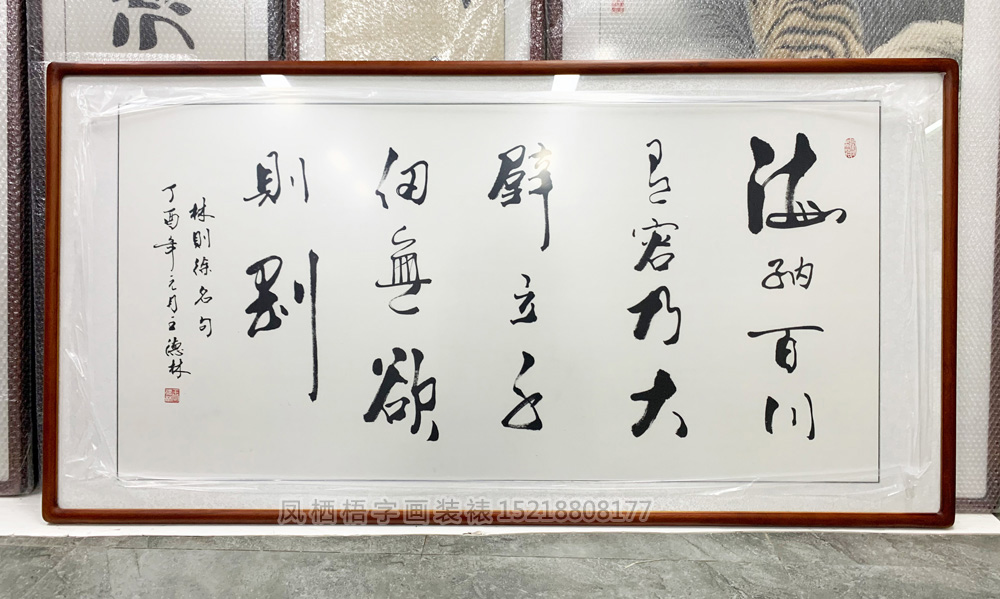 海納百川
有容乃大
壁立千
仞無欲
則剛
林則徐名句
丁酉年元月王德林
凤栖梧字画装裱 15218808177